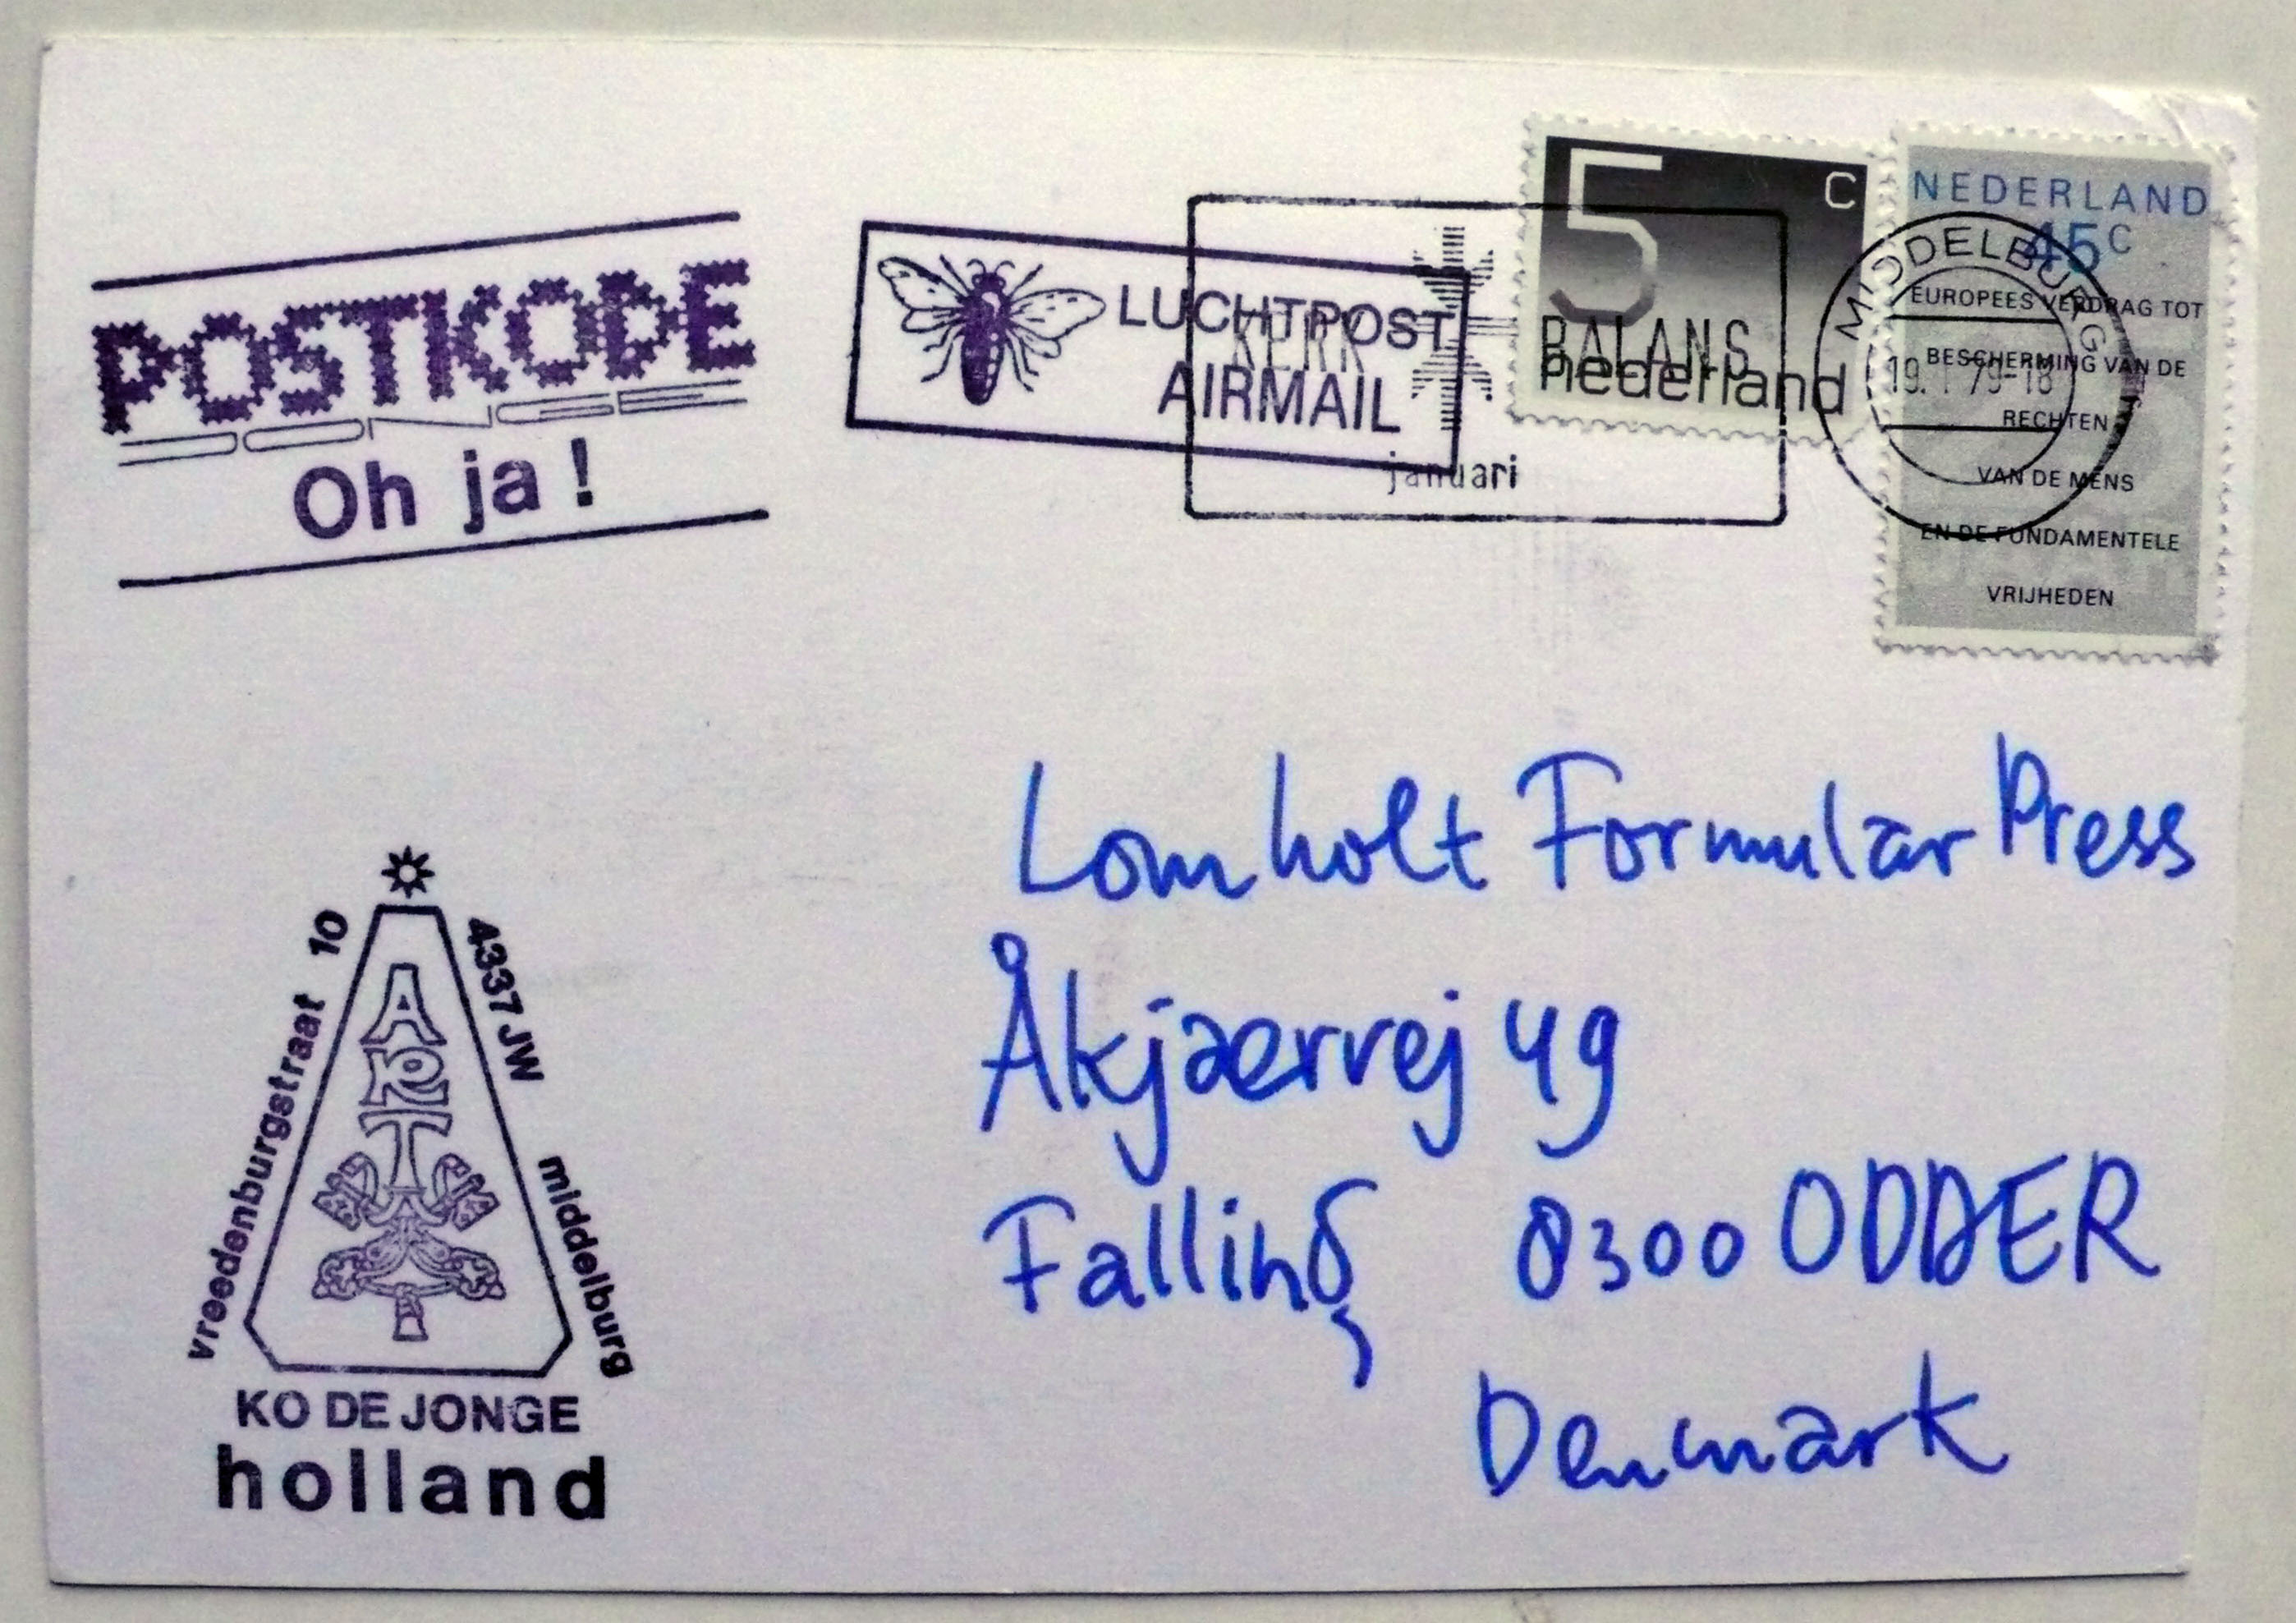 POSTKODE
JONGE
Oh ja !
LUCHTPOST
AIRMAIL
KERK BALANS
januari
5 C
nederland
NEDERLAND
45c
EUROPEES VERDRAG TOT
BESCHERMING VAN DE
RECHTEN
VAN DE MENS
EN DE FUNDAMENTELE
VRIJHEDEN
MIDDELBURG
19. 1 79-18
Lomholt Formular Press
Åkjærvej 49
Falling 8300 ODDER
Denmark
vreedenburgstraat 10
4337 JW middelburg
ART
KO DE JONGE
holland